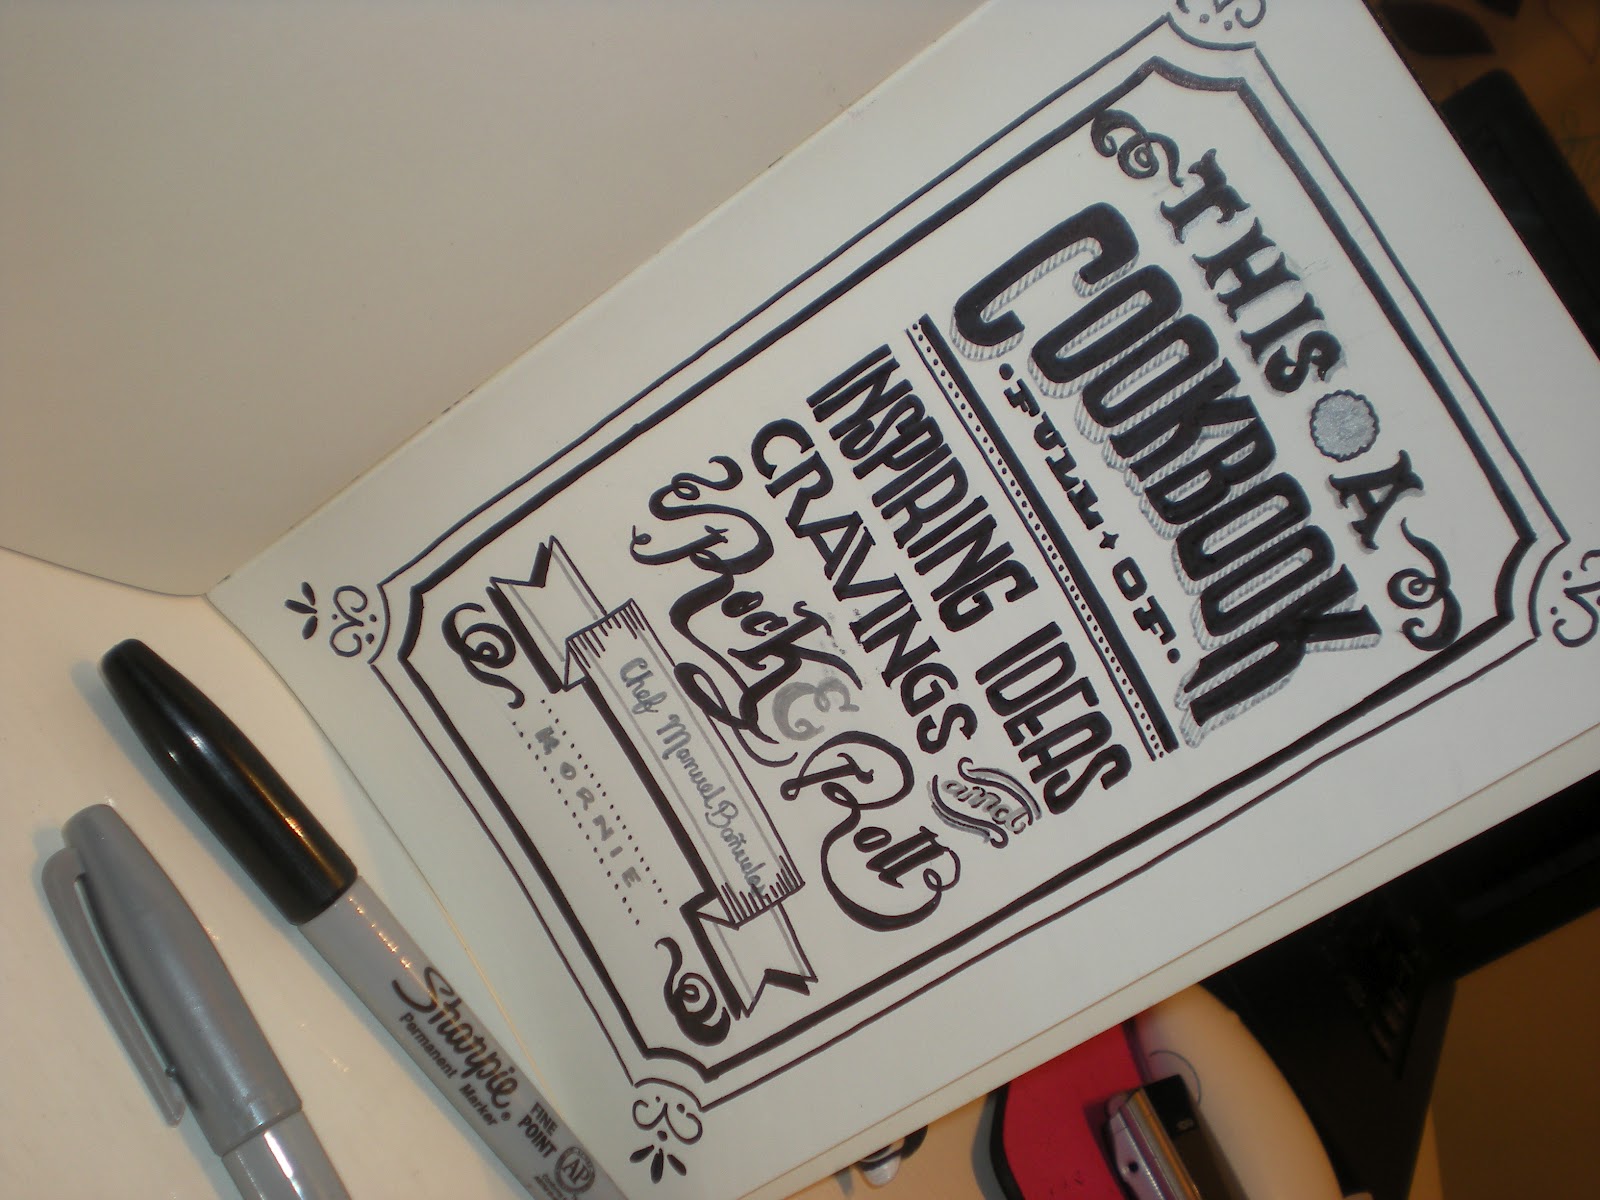 THIS A
COOKBOOK
·FULL+OF·
INSPIRING IDEAS
CRAVINGS and
Rock & Roll
Chef Manuel Bañuelas
KORNIE
Sharpie.
Permanent Marker
FINE
POINT
AP